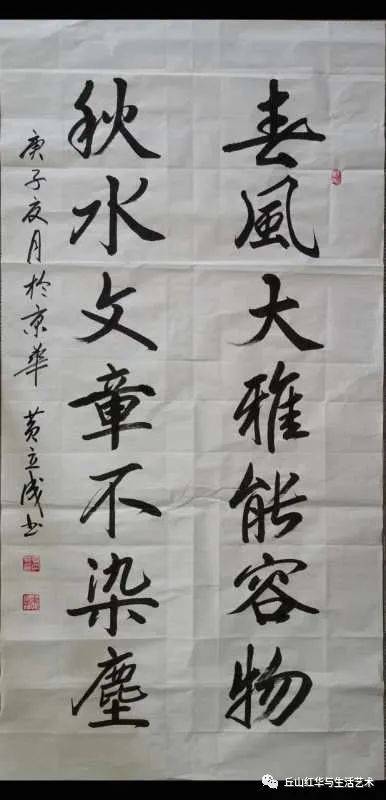 春風大雅能容物
秋水文章不染塵
庚子夏月於京華 黄立成书
丘山红华与生活艺术